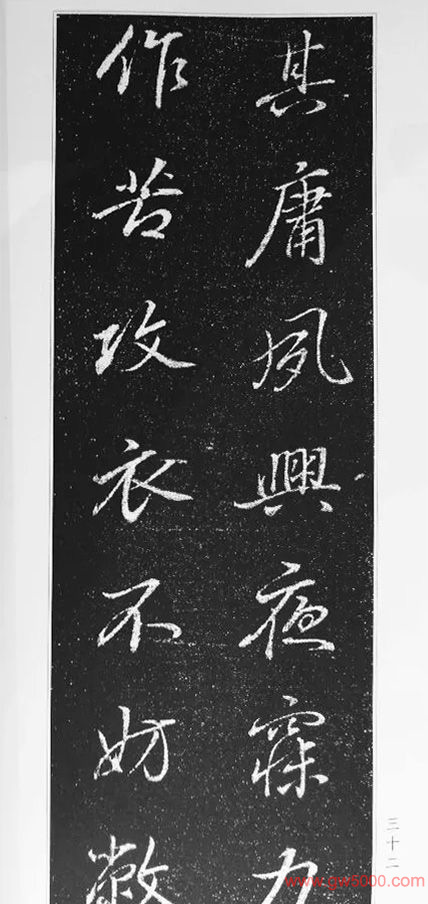 其庸夙興夜寐力
作苦攻衣不妨敝
三十二
www.gw5000.com